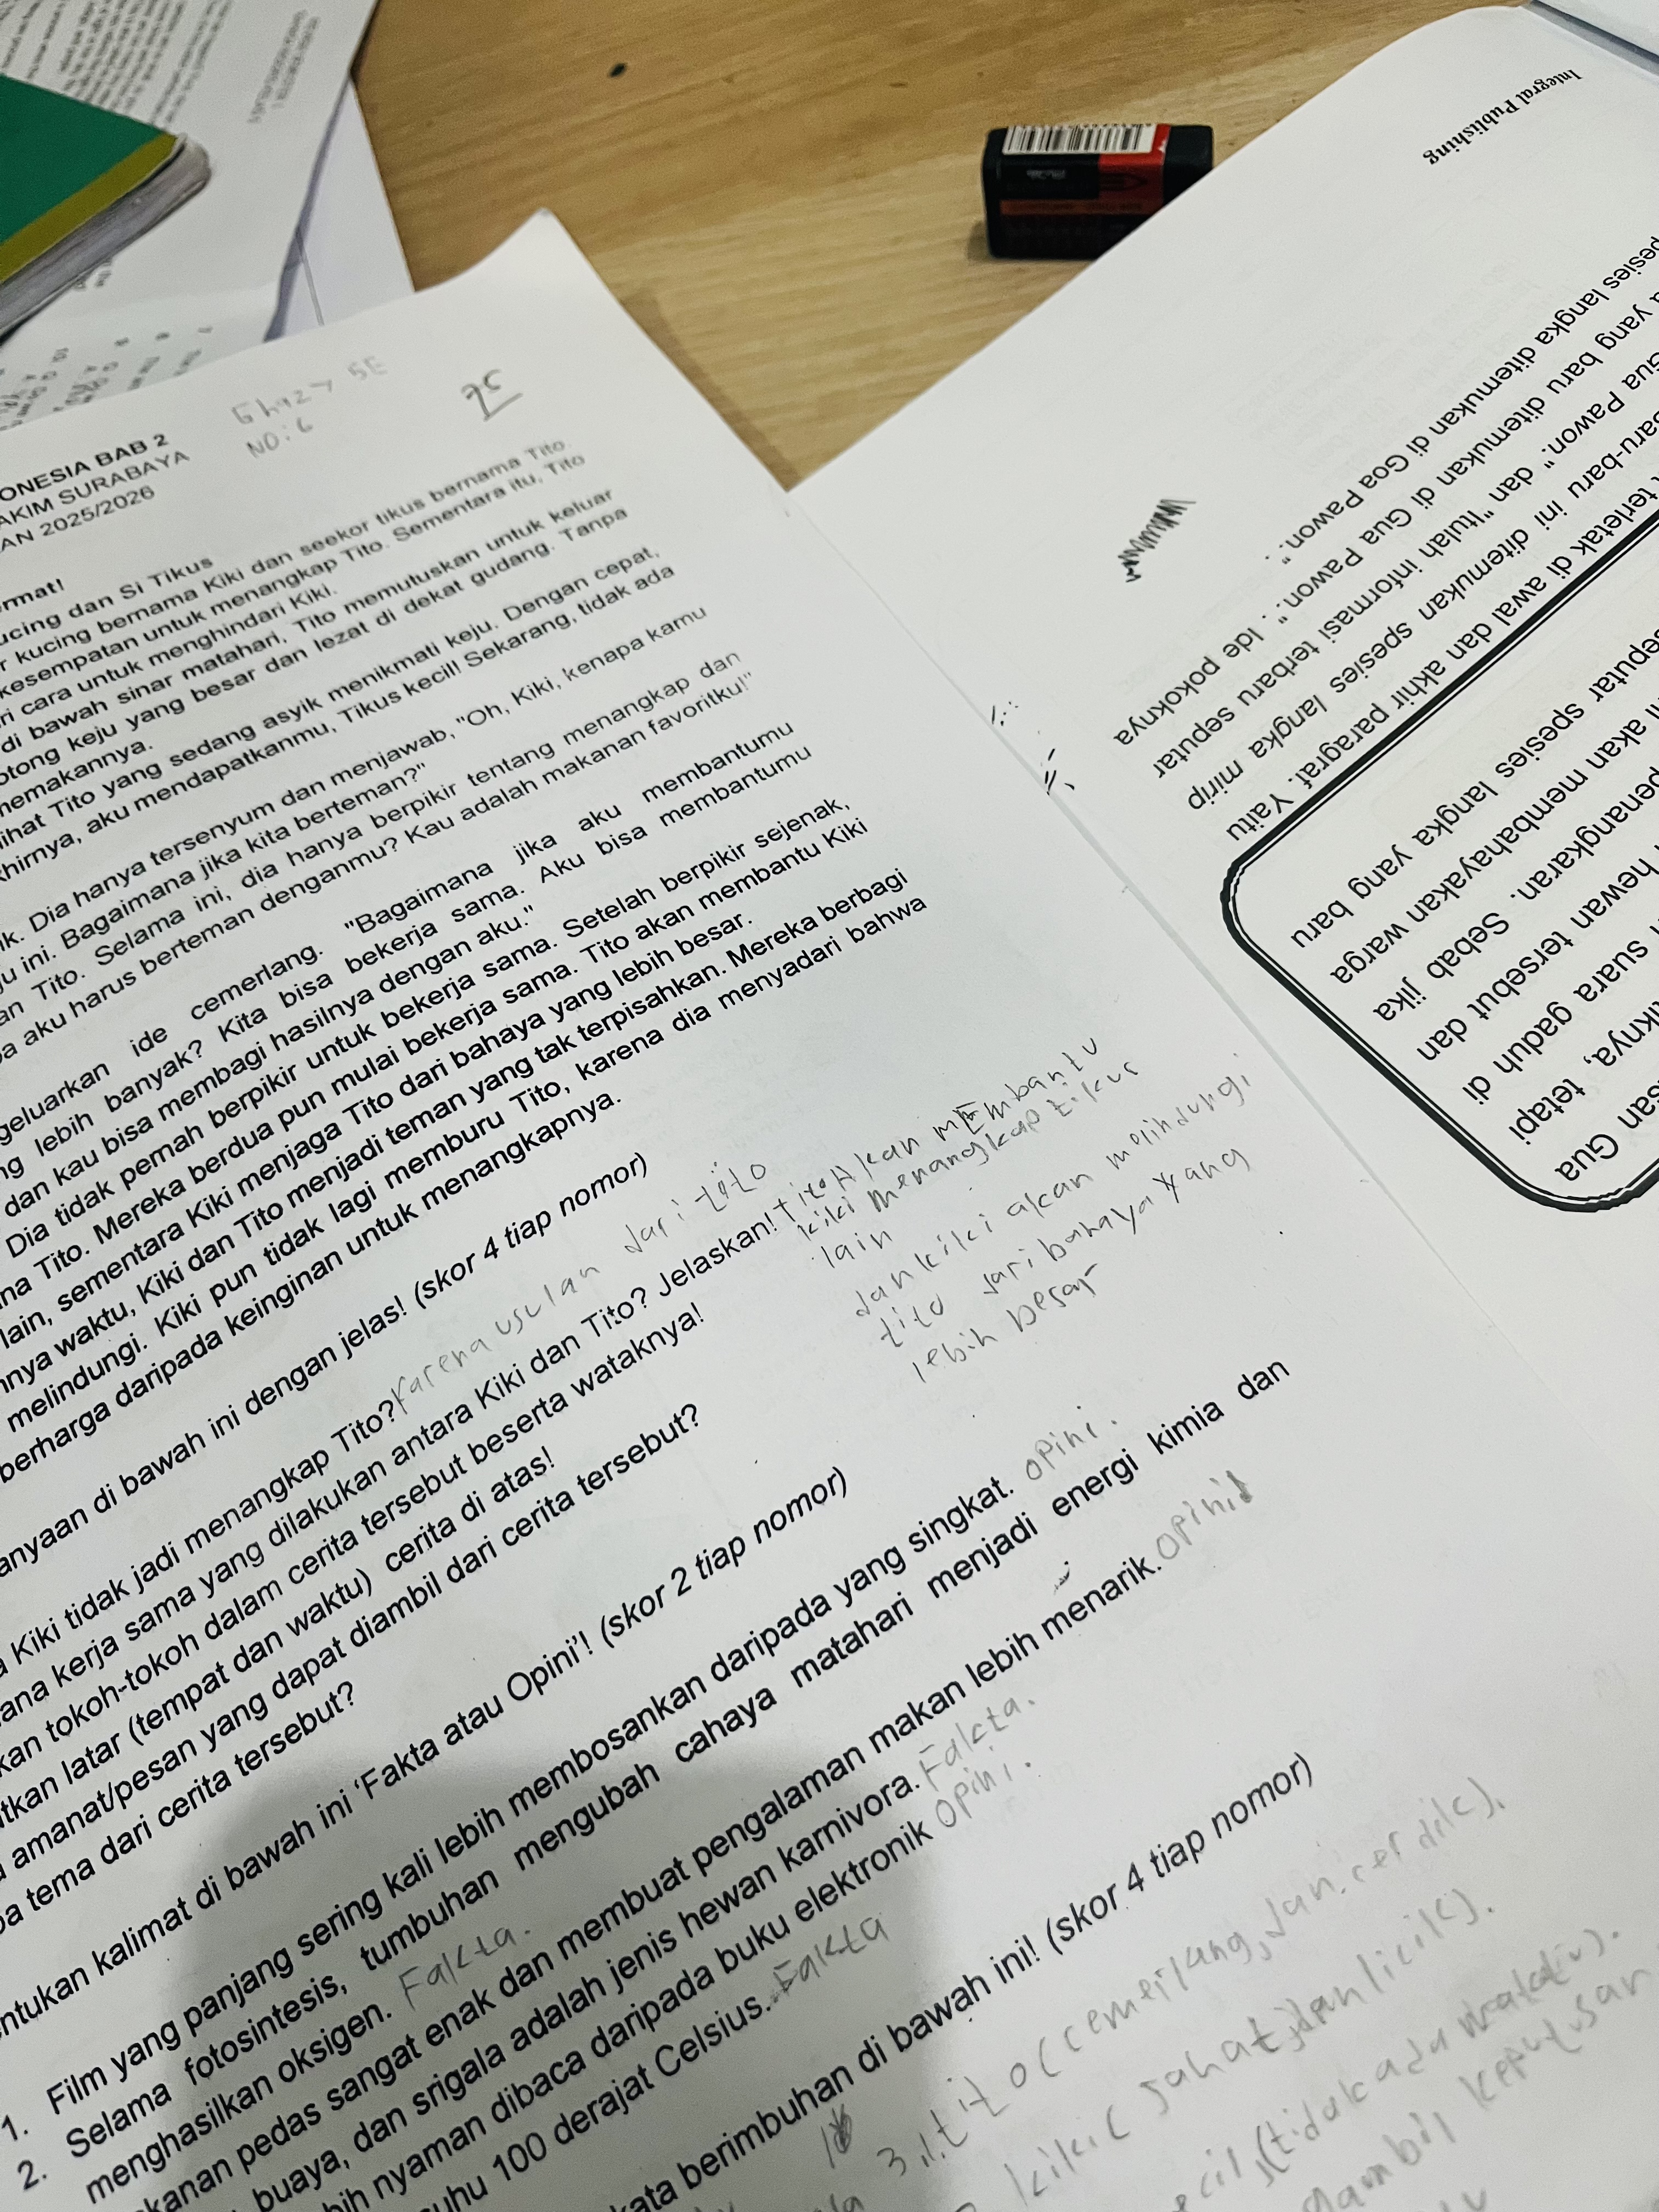 Ghazy 5E
NO: 6
75
ONESIA BAB 2
AKIM SURABAYA
AN 2025/2026
rmat!
ucing dan Si Tikus
r kucing bernama Kiki dan seekor tikus bernama Tito.
kesempatan untuk menangkap Tito. Sementara itu, Tito
ri cara untuk menghindari Kiki.
di bawah sinar matahari, Tito memutuskan untuk keluar
otong keju yang besar dan lezat di dekat gudang. Tanpa
memakannya.
lihat Tito yang sedang asyik menikmati keju. Dengan cepat,
khirnya, aku mendapatkanmu, Tikus kecil! Sekarang, tidak ada
ik. Dia hanya tersenyum dan menjawab, "Oh, Kiki, kenapa kamu
ju ini. Bagaimana jika kita berteman?"
an Tito. Selama ini, dia hanya berpikir tentang menangkap dan
pa aku harus berteman denganmu? Kau adalah makanan favoritku!"
geluarkan ide cemerlang. "Bagaimana jika aku membantumu
ng lebih banyak? Kita bisa bekerja sama. Aku bisa membantumu
dan kau bisa membagi hasilnya dengan aku."
Dia tidak pernah berpikir untuk bekerja sama. Setelah berpikir sejenak,
na Tito. Mereka berdua pun mulai bekerja sama. Tito akan membantu Kiki
lain, sementara Kiki menjaga Tito dari bahaya yang lebih besar.
nnya waktu, Kiki dan Tito menjadi teman yang tak terpisahkan. Mereka berbagi
melindungi. Kiki pun tidak lagi memburu Tito, karena dia menyadari bahwa
berharga daripada keinginan untuk menangkapnya.
anyaan di bawah ini dengan jelas! (skor 4 tiap nomor)
a Kiki tidak jadi menangkap Tito? Karena usulan dari tito
ana kerja sama yang dilakukan antara Kiki dan Tito? Jelaskan! tito Akan mEmbantu
kiki menangkap tikus
lain
dan kiki akan melindungi
tito dari bahaya yang
lebih besar
kan tokoh-tokoh dalam cerita tersebut beserta wataknya!
tkan latar (tempat dan waktu) cerita di atas!
a amanat/pesan yang dapat diambil dari cerita tersebut?
pa tema dari cerita tersebut?
entukan kalimat di bawah ini 'Fakta atau Opini'! (skor 2 tiap nomor)
1. Film yang panjang sering kali lebih membosankan daripada yang singkat. opini.
2. Selama fotosintesis, tumbuhan mengubah cahaya matahari menjadi energi kimia dan
menghasilkan oksigen. Fakta.
akanan pedas sangat enak dan membuat pengalaman makan lebih menarik. opini
, buaya, dan srigala adalah jenis hewan karnivora. Fakta.
bih nyaman dibaca daripada buku elektronik opini.
uhu 100 derajat Celsius. Fakta
kata berimbuhan di bawah ini! (skor 4 tiap nomor)
3. 1. tito (cemerlang, dan cerdik).
kiki ( jahat, dan licik).
Integral Publishing
san Gua
iknya, tetapi
suara gaduh di
hewan tersebut dan
penangkaran. Sebab jika
akan membahayakan warga
eputar spesies langka yang baru
terletak di awal dan akhir paragraf. Yaitu
baru-baru ini ditemukan spesies langka mirip
Gua Pawon." dan "Itulah informasi terbaru seputar
yang baru ditemukan di Gua Pawon.". Ide pokoknya
pesies langka ditemukan di Goa Pawon.".